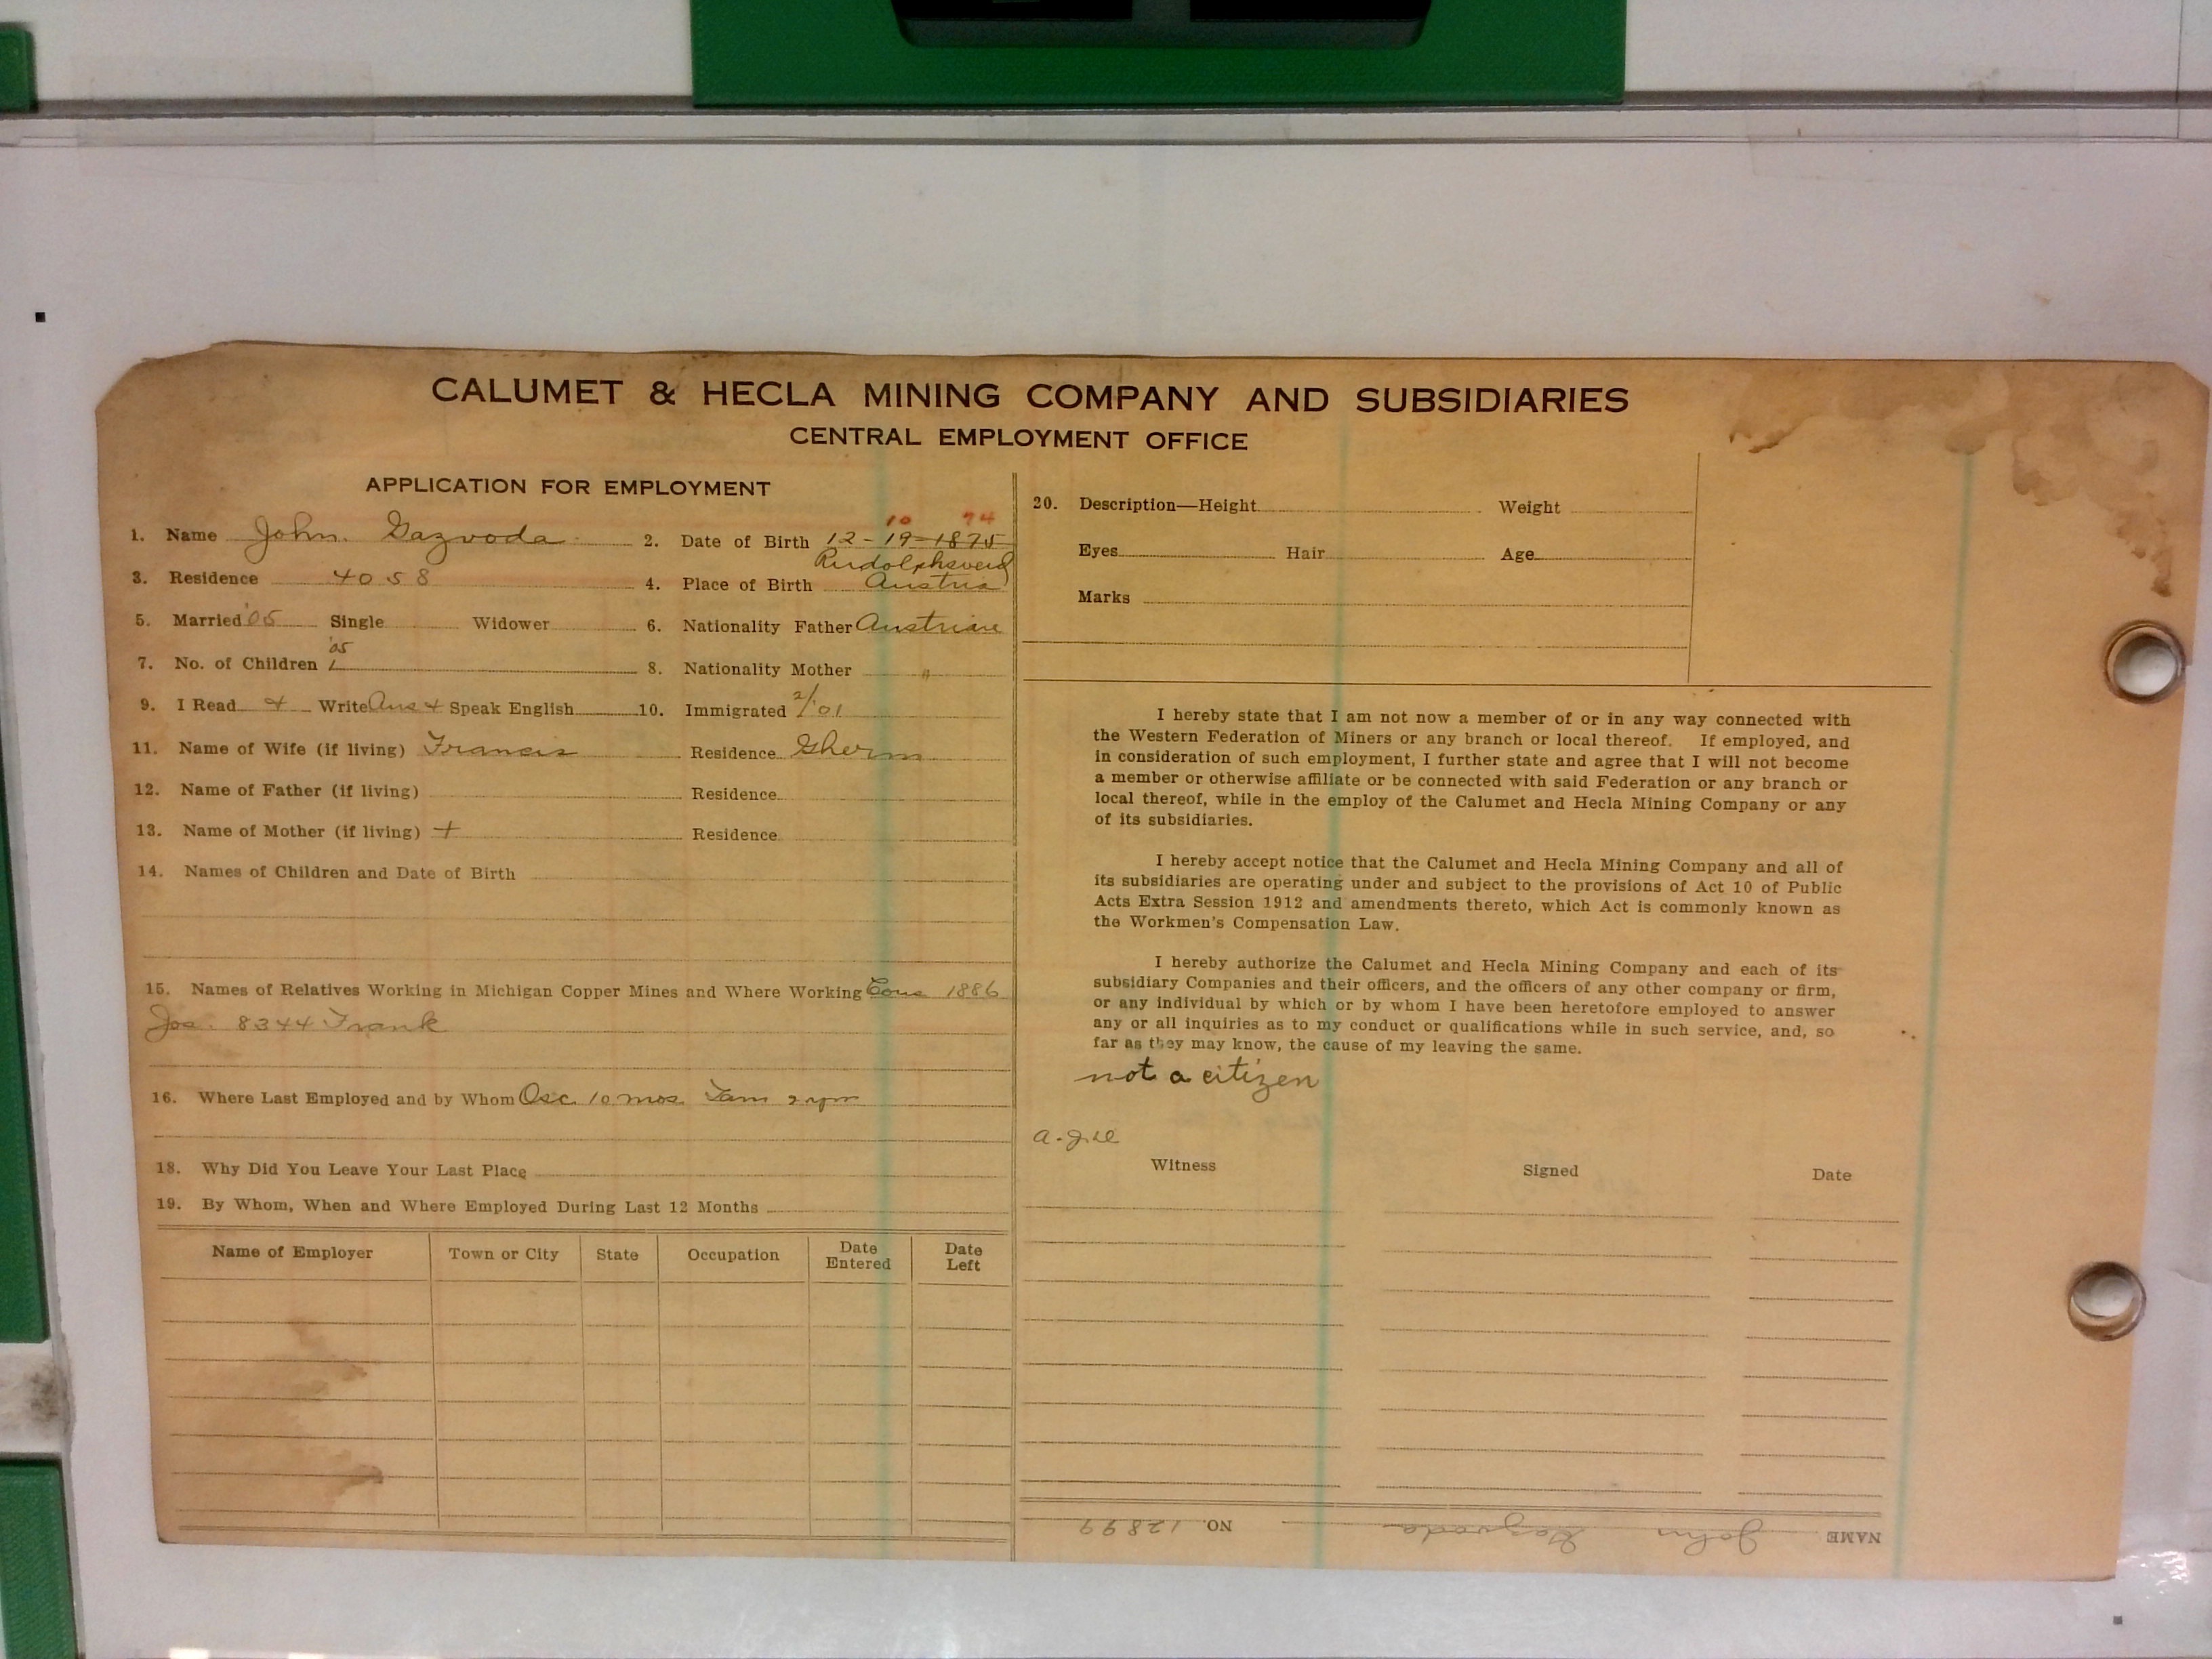 CALUMET & HECLA MINING COMPANY AND SUBSIDIARIES
CENTRAL EMPLOYMENT OFFICE
APPLICATION FOR EMPLOYMENT
10 74
1. Name John. Gazvoda 2. Date of Birth 12-19-1875
Rudolphswerd
3. Residence 4058 4. Place of Birth Austria
5. Married '05 Single Widower 6. Nationality Father Austrian
'05
7. No. of Children 1 8. Nationality Mother "
9. I Read + Write Aus + Speak English 10. Immigrated 2/'01
11. Name of Wife (if living) Francis Residence
12. Name of Father (if living) Residence
13. Name of Mother (if living) + Residence
14. Names of Children and Date of Birth
15. Names of Relatives Working in Michigan Copper Mines and Where Working Cous 1886
Jos. 8344 Frank
16. Where Last Employed and by Whom Osc. 10 mos.
18. Why Did You Leave Your Last Place
19. By Whom, When and Where Employed During Last 12 Months
Name of Employer Town or City State Occupation Date Entered Date Left
20. Description—Height Weight
Eyes Hair Age
Marks
I hereby state that I am not now a member of or in any way connected with
the Western Federation of Miners or any branch or local thereof. If employed, and
in consideration of such employment, I further state and agree that I will not become
a member or otherwise affiliate or be connected with said Federation or any branch or
local thereof, while in the employ of the Calumet and Hecla Mining Company or any
of its subsidiaries.
I hereby accept notice that the Calumet and Hecla Mining Company and all of
its subsidiaries are operating under and subject to the provisions of Act 10 of Public
Acts Extra Session 1912 and amendments thereto, which Act is commonly known as
the Workmen's Compensation Law.
I hereby authorize the Calumet and Hecla Mining Company and each of its
subsidiary Companies and their officers, and the officers of any other company or firm,
or any individual by which or by whom I have been heretofore employed to answer
any or all inquiries as to my conduct or qualifications while in such service, and, so
far as they may know, the cause of my leaving the same.
not a citizen
Witness Signed Date
NAME John Gazvoda NO. 12899